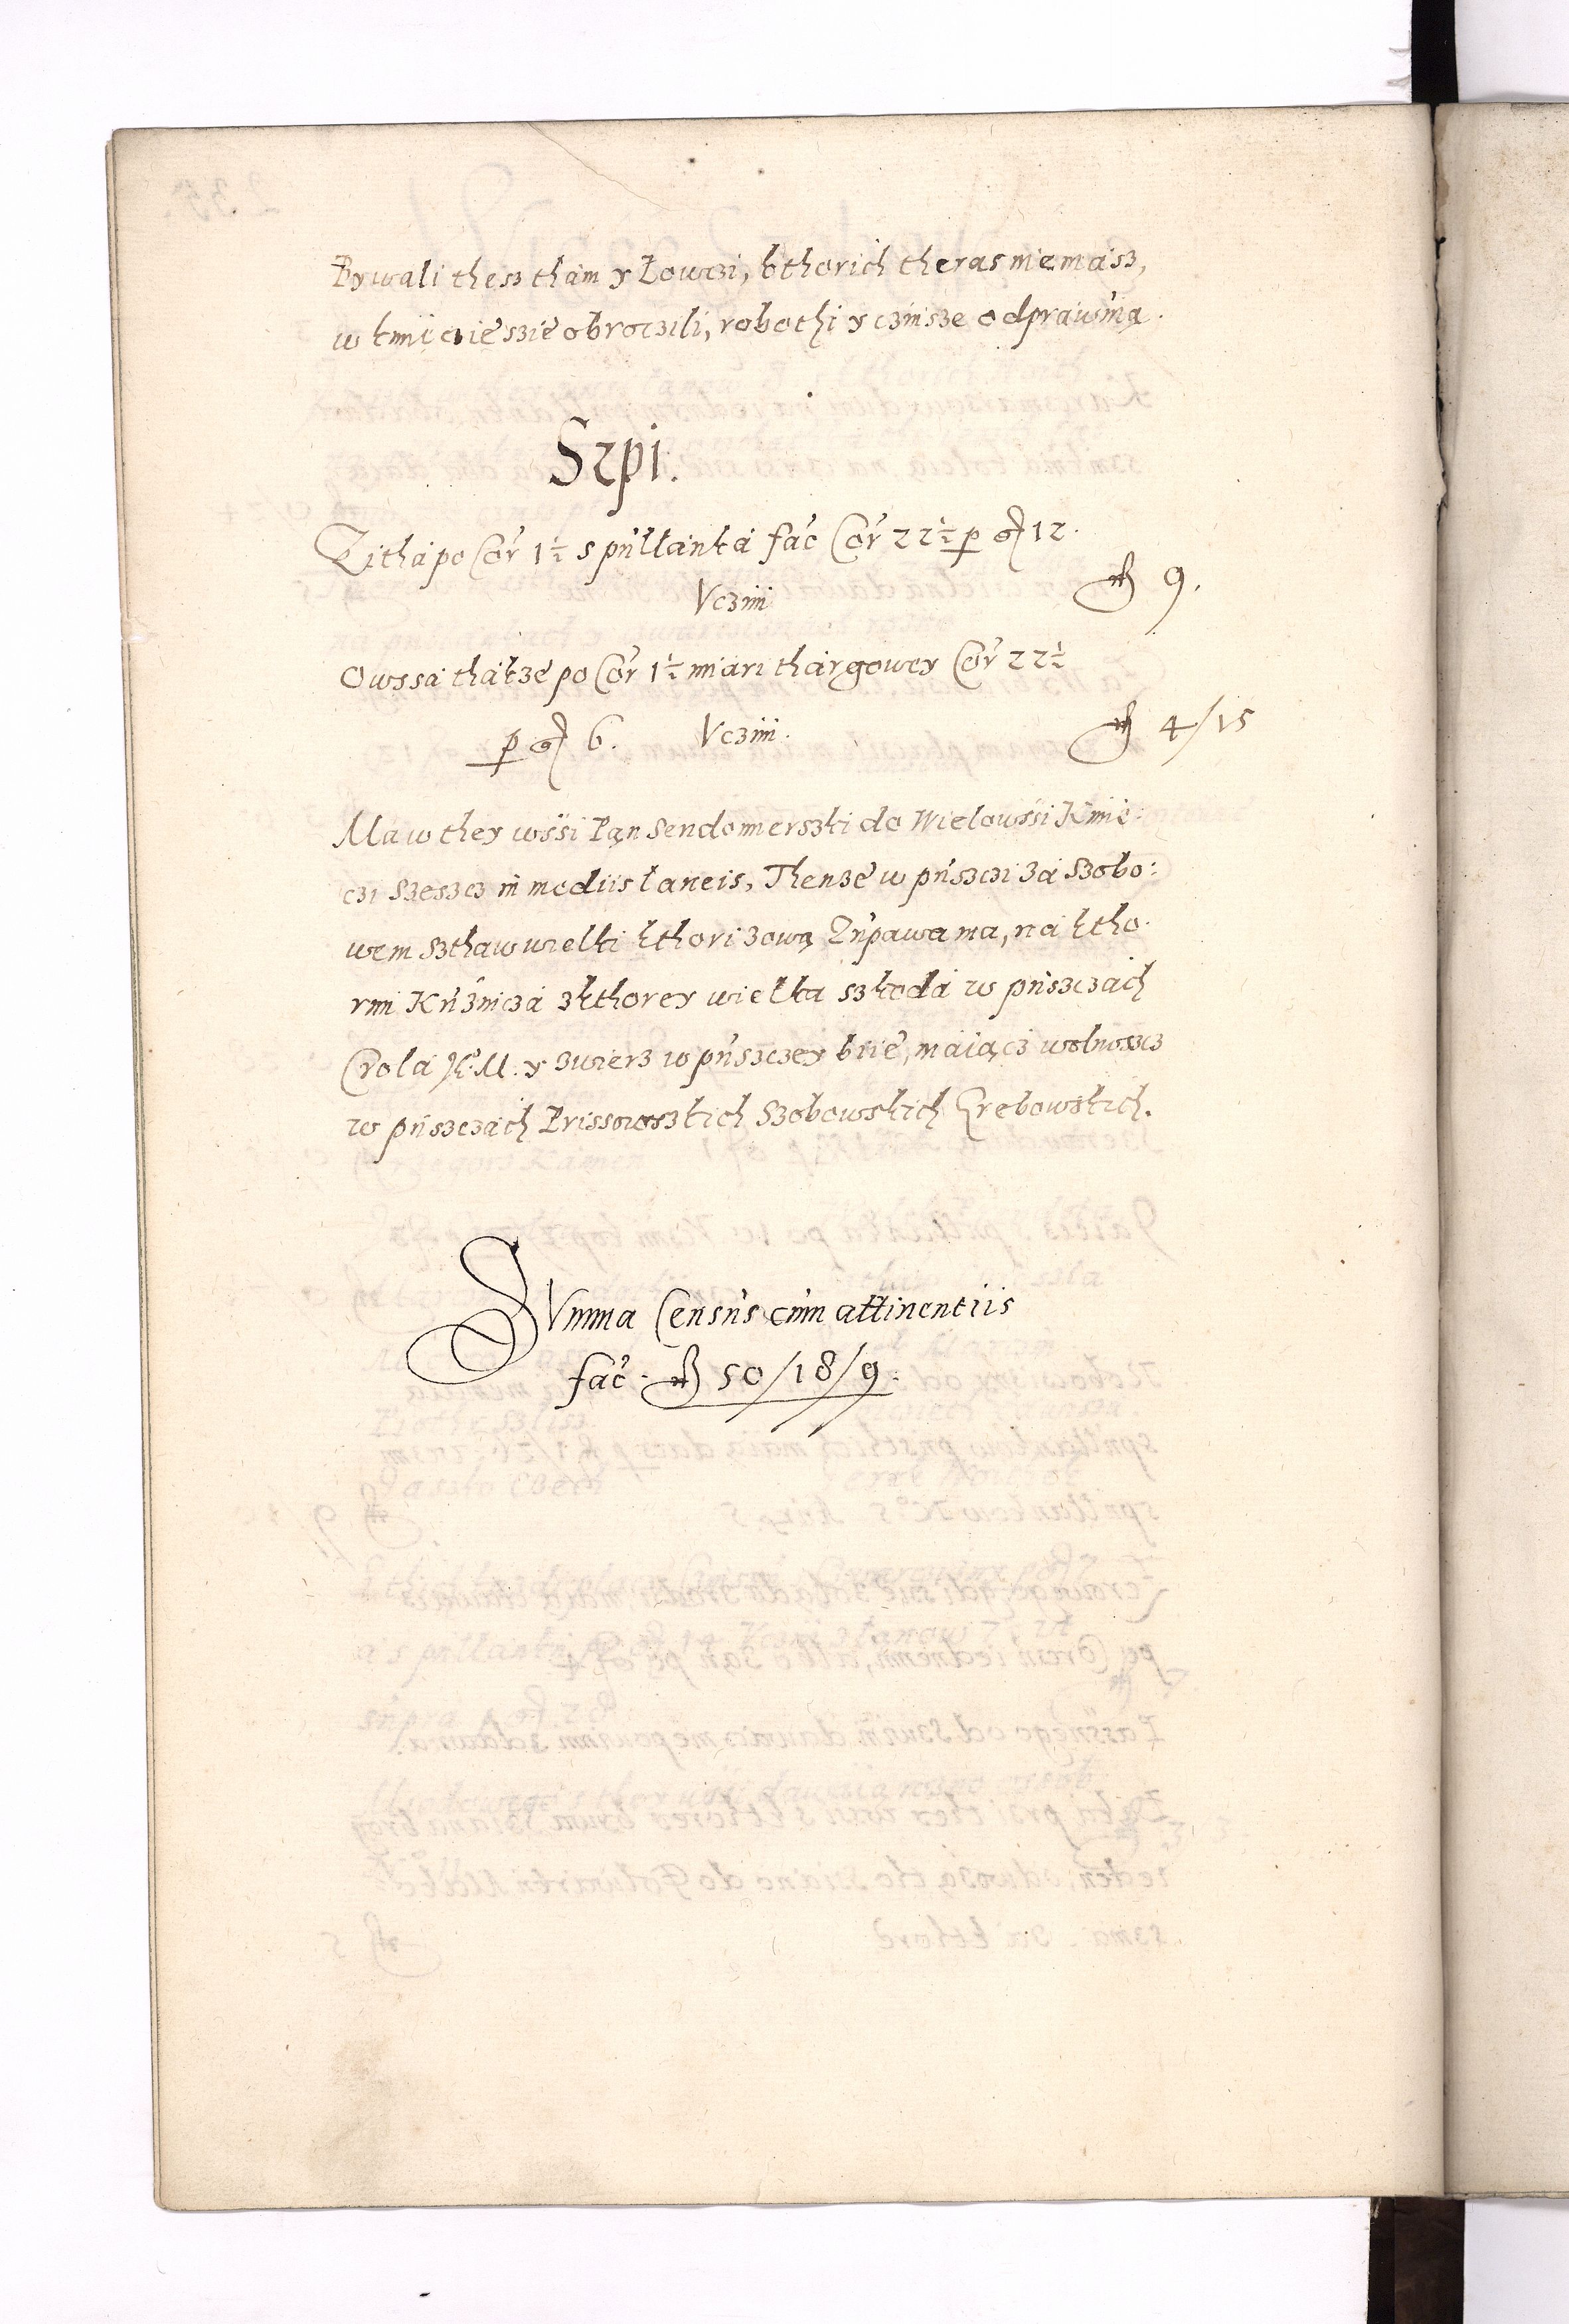 Bywali thesz tham y Łowczi, kthorich theras niemasz,
w kmiecie szie obroczili, robothi y czinsze odprawuią.
Sepi.
Zitha po Cor 1½ s pułłanka fac Cor 22½ p gr 12.
Vczini fl 9.
Owssa thakze po Cor 1½ miari thargowey Cor 22½
p gr 6. Vczini. fl 4/15
Ma w they wssi Pan Sendomierszki do Wielowssi Kmie:
czi szescz in mediis laneis, Thenze w puszczi za Szobo:
wem sthaw wielki kthori zową Zupawa ma, na ktho:
rim Kuznicza z kthorey wielka szkoda w puszczach
Crola J. K. M. y zwierz w puszczey biie, maiącz wolnoscz
w puszczach Prissowszkich Szobowskich Grebowskich.
Summa Census cum attinentiis
fac. fl 50/18/9.